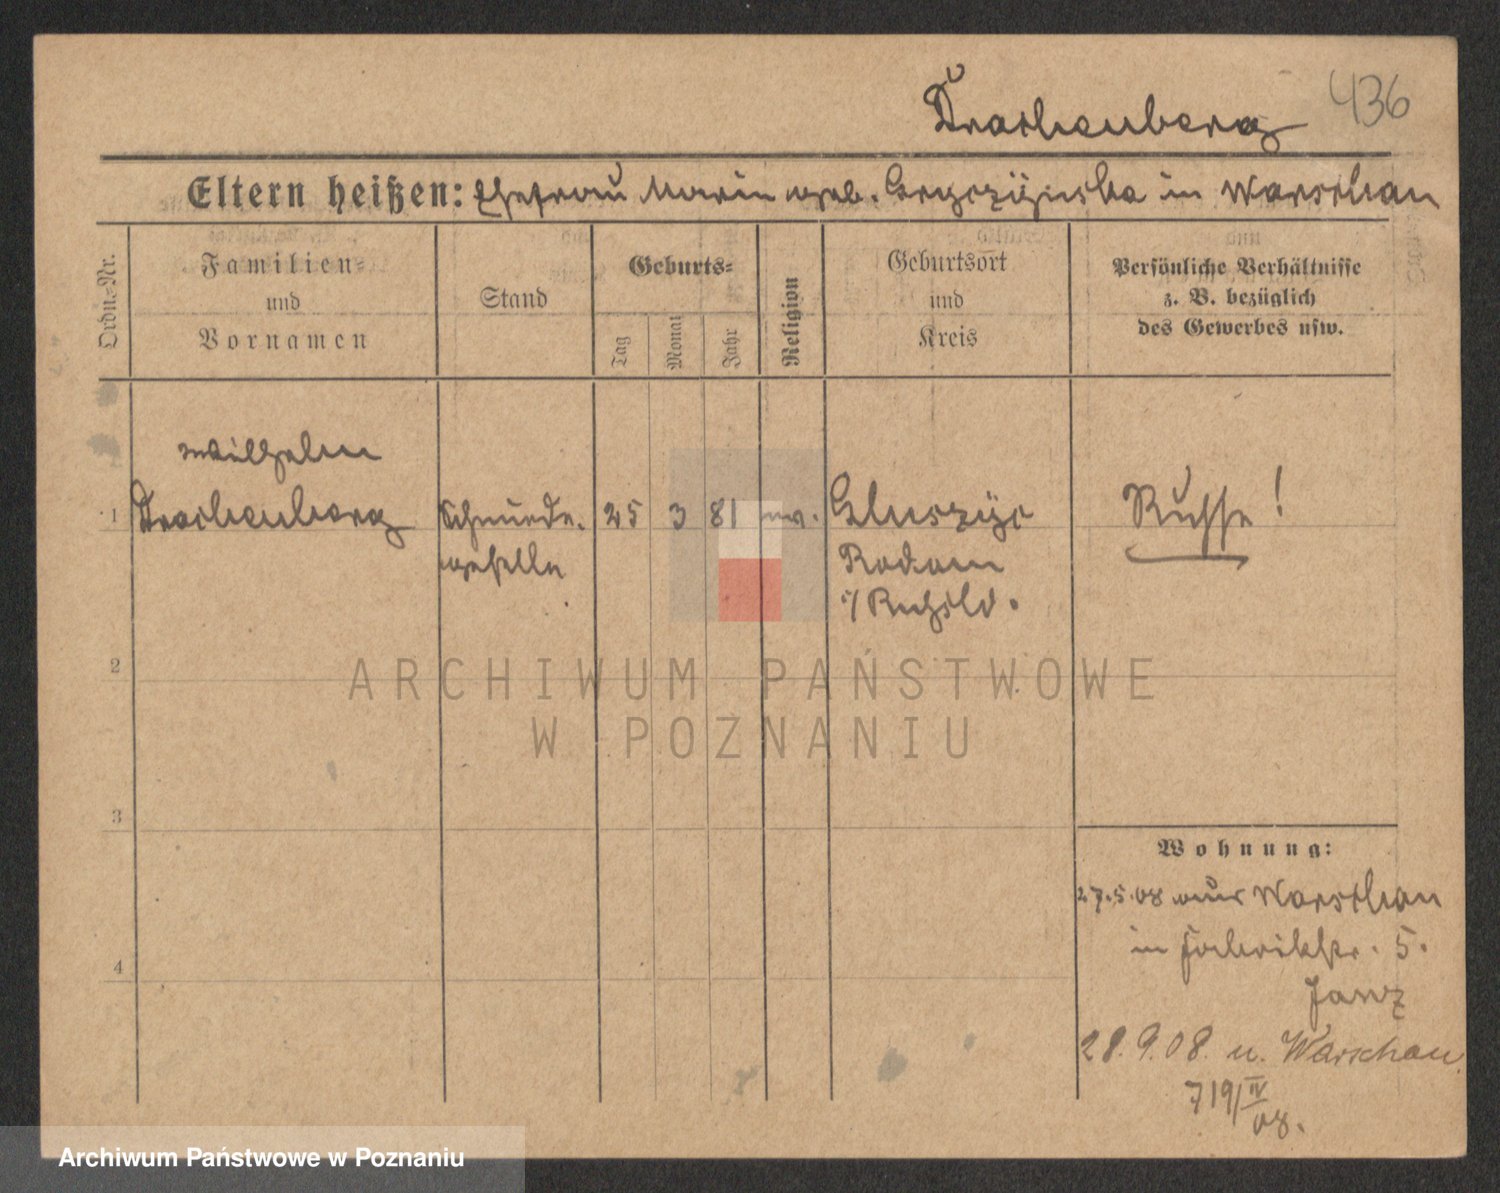 Drachenberg 436
Eltern heißen: Ehefrau Maria geb. in Warschau
Ordn.-Nr.
Familien-
und
Vornamen
Stand
Geburts-
Tag
Monat
Jahr
Religion
Geburtsort
und
Kreis
Persönliche Verhältnisse
z. B. bezüglich
des Gewerbes usw.
Wilhelm
1 Drachenberg
geselle
25 3 81
Radom
i/ Rußld.
Russe!
2
3
4
Wohnung:
27.5.08 aus Warschau
in Fabrikstr. 5.
28.9.08. n. Warschau.
719/IV
08.
ARCHIWUM PAŃSTWOWE
W POZNANIU
Archiwum Państwowe w Poznaniu